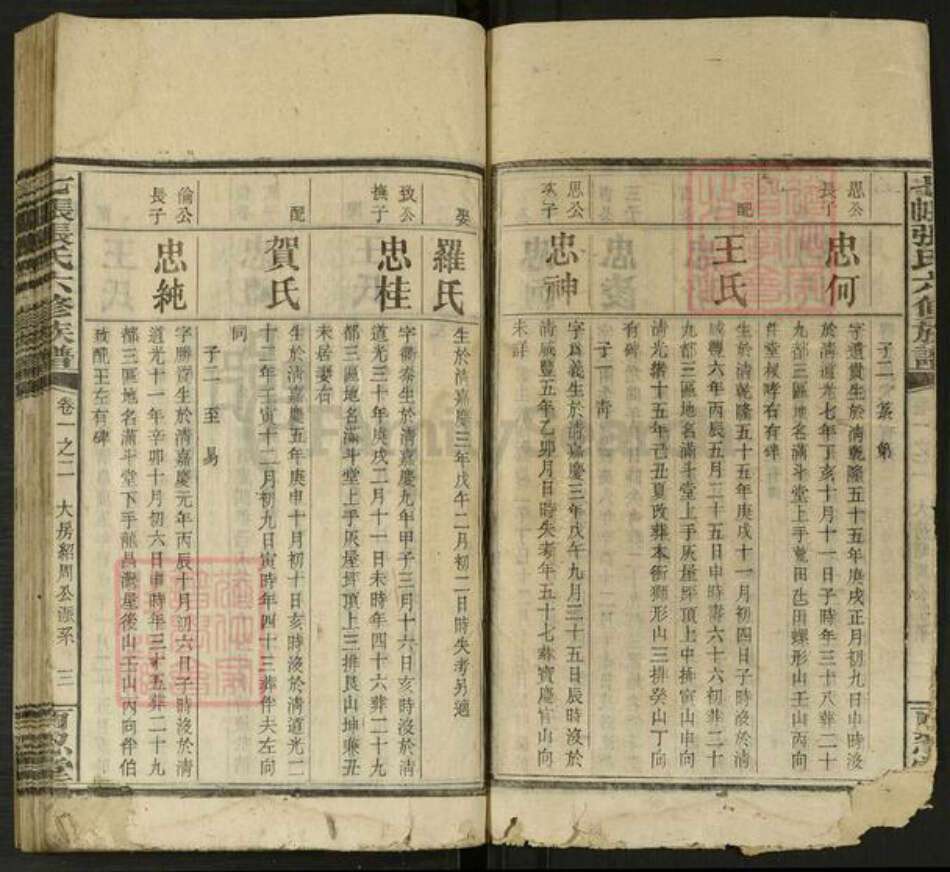 子二 篆 第
思公長子
忠何
字遺貴生於清乾隆五十五年庚戌正月初九日申時沒
於清道光七年丁亥十月十一日子時年三十八葬二十
九都三區地名滿斗堂上手 田 田螺形山壬山丙向
堂叔 右有碑
配
王氏
生於清乾隆五十五年庚戌十一月初四日子時沒於清
咸豐六年丙辰五月二十五日申時壽六十六初葬二十
九都三區地名滿斗堂上手灰屋坪頂上中排寅山申向
清光緒十五年己丑夏改葬本衝獅形山三排癸山丁向
有碑
子一 青
思公次子
忠神
字為義生於清嘉慶三年戊午九月二十五日辰時沒於
清咸豐五年乙卯月日時失考年五十七葬寶慶官山向
未詳
娶
羅氏
生於清嘉慶三年戊午二月初二日時失考另適
致公撫子
忠桂
字 泰生於清嘉慶九年甲子三月十六日亥時沒於清
道光三十年庚戌二月十一日未時年四十六葬二十九
都三區地名滿斗堂上手灰屋坪頂上三排艮山坤兼丑
未居妻右
配
賀氏
生於清嘉慶五年庚申十月初十日亥時沒於清道光二
十二年壬寅十二月初九日寅時年四十三葬伴夫左向
同
子二 至 易
倫公長子
忠純
字勝資生於清嘉慶元年丙辰十月初六日子時沒於清
道光十一年辛卯十月初六日申時年三十五葬二十九
都三區地名滿斗堂下手龍昌灣屋後山壬山丙向伴伯
致配王左有碑
七張張氏六修族譜 卷一之二 大房紹周公派系 三